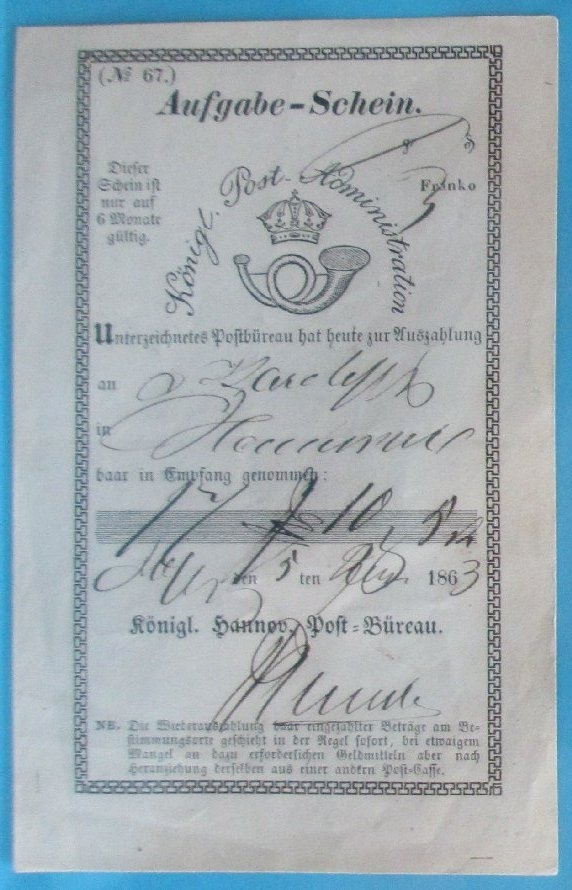 (№ 67.)
Aufgabe-Schein.
Dieser
Schein ist
nur auf
6 Monate
gültig.
Königl. Post-Administration
Franko
Unterzeichnetes Postbüreau hat heute zur Auszahlung
an v
in Hannover
baar in Empfang genommen:
17 10 8
den 5 ten 1863
Königl. Hannov. Post-Büreau.
NB. Die Wiederauszahlung baar eingezahlter Beträge am Be-
stimmungsorte geschieht in der Regel sofort, bei etwaigem
Mangel an dazu erforderlichen Geldmitteln aber nach
Heranziehung derselben aus einer andern Post-Casse.